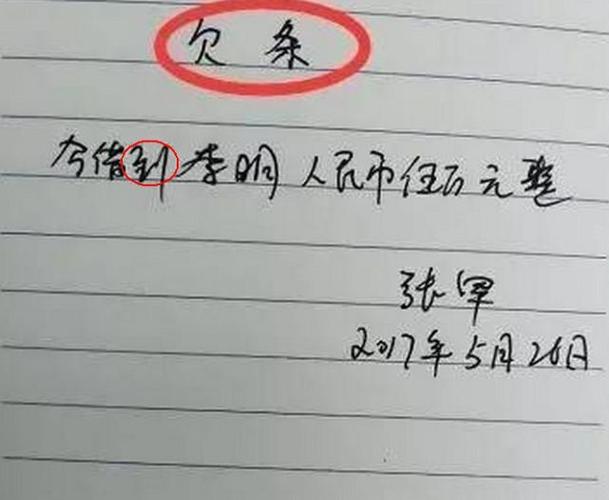 欠条
今借到李明人民币伍百元整
张军
2017年5月26日